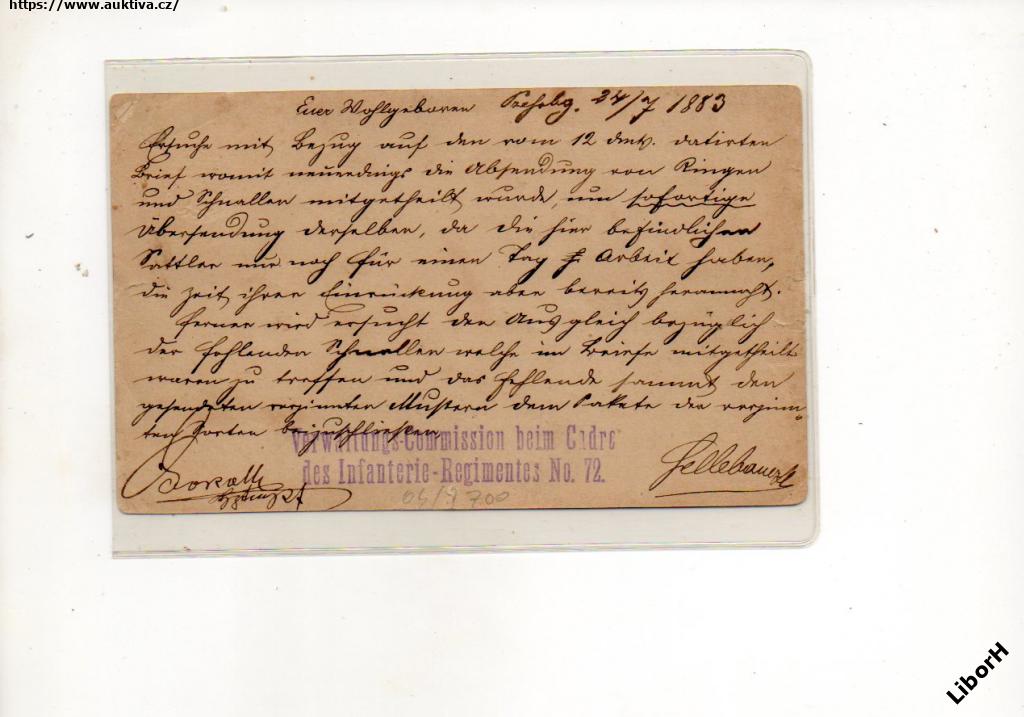 https://www.auktiva.cz/
Euer Wohlgeboren 24/7 1883
Ersuche mit Bezug auf den vom 12 dmts. datirten
Brief womit neuerdings die Absendung von Ringen
und Schnallen mitgetheilt wurde, um sofortige
Übersendung derselben, da die hier befindlichen
Sattler nur noch für einen Tag Arbeit haben,
die Zeit ihrer Einrückung aber bereits herannaht.
Ferner wird ersucht den Ausgleich bezüglich
der fehlenden Schnallen welche im Briefe mitgetheilt
waren zu treffen und das Fehlende sammt den
gesendeten verzinnten Mustern dem Pakete der verzinn-
ten Sorten beizuschließen
Verwaltungs-Commission beim Cadre
des Infanterie-Regimentes No. 72.
LiborH